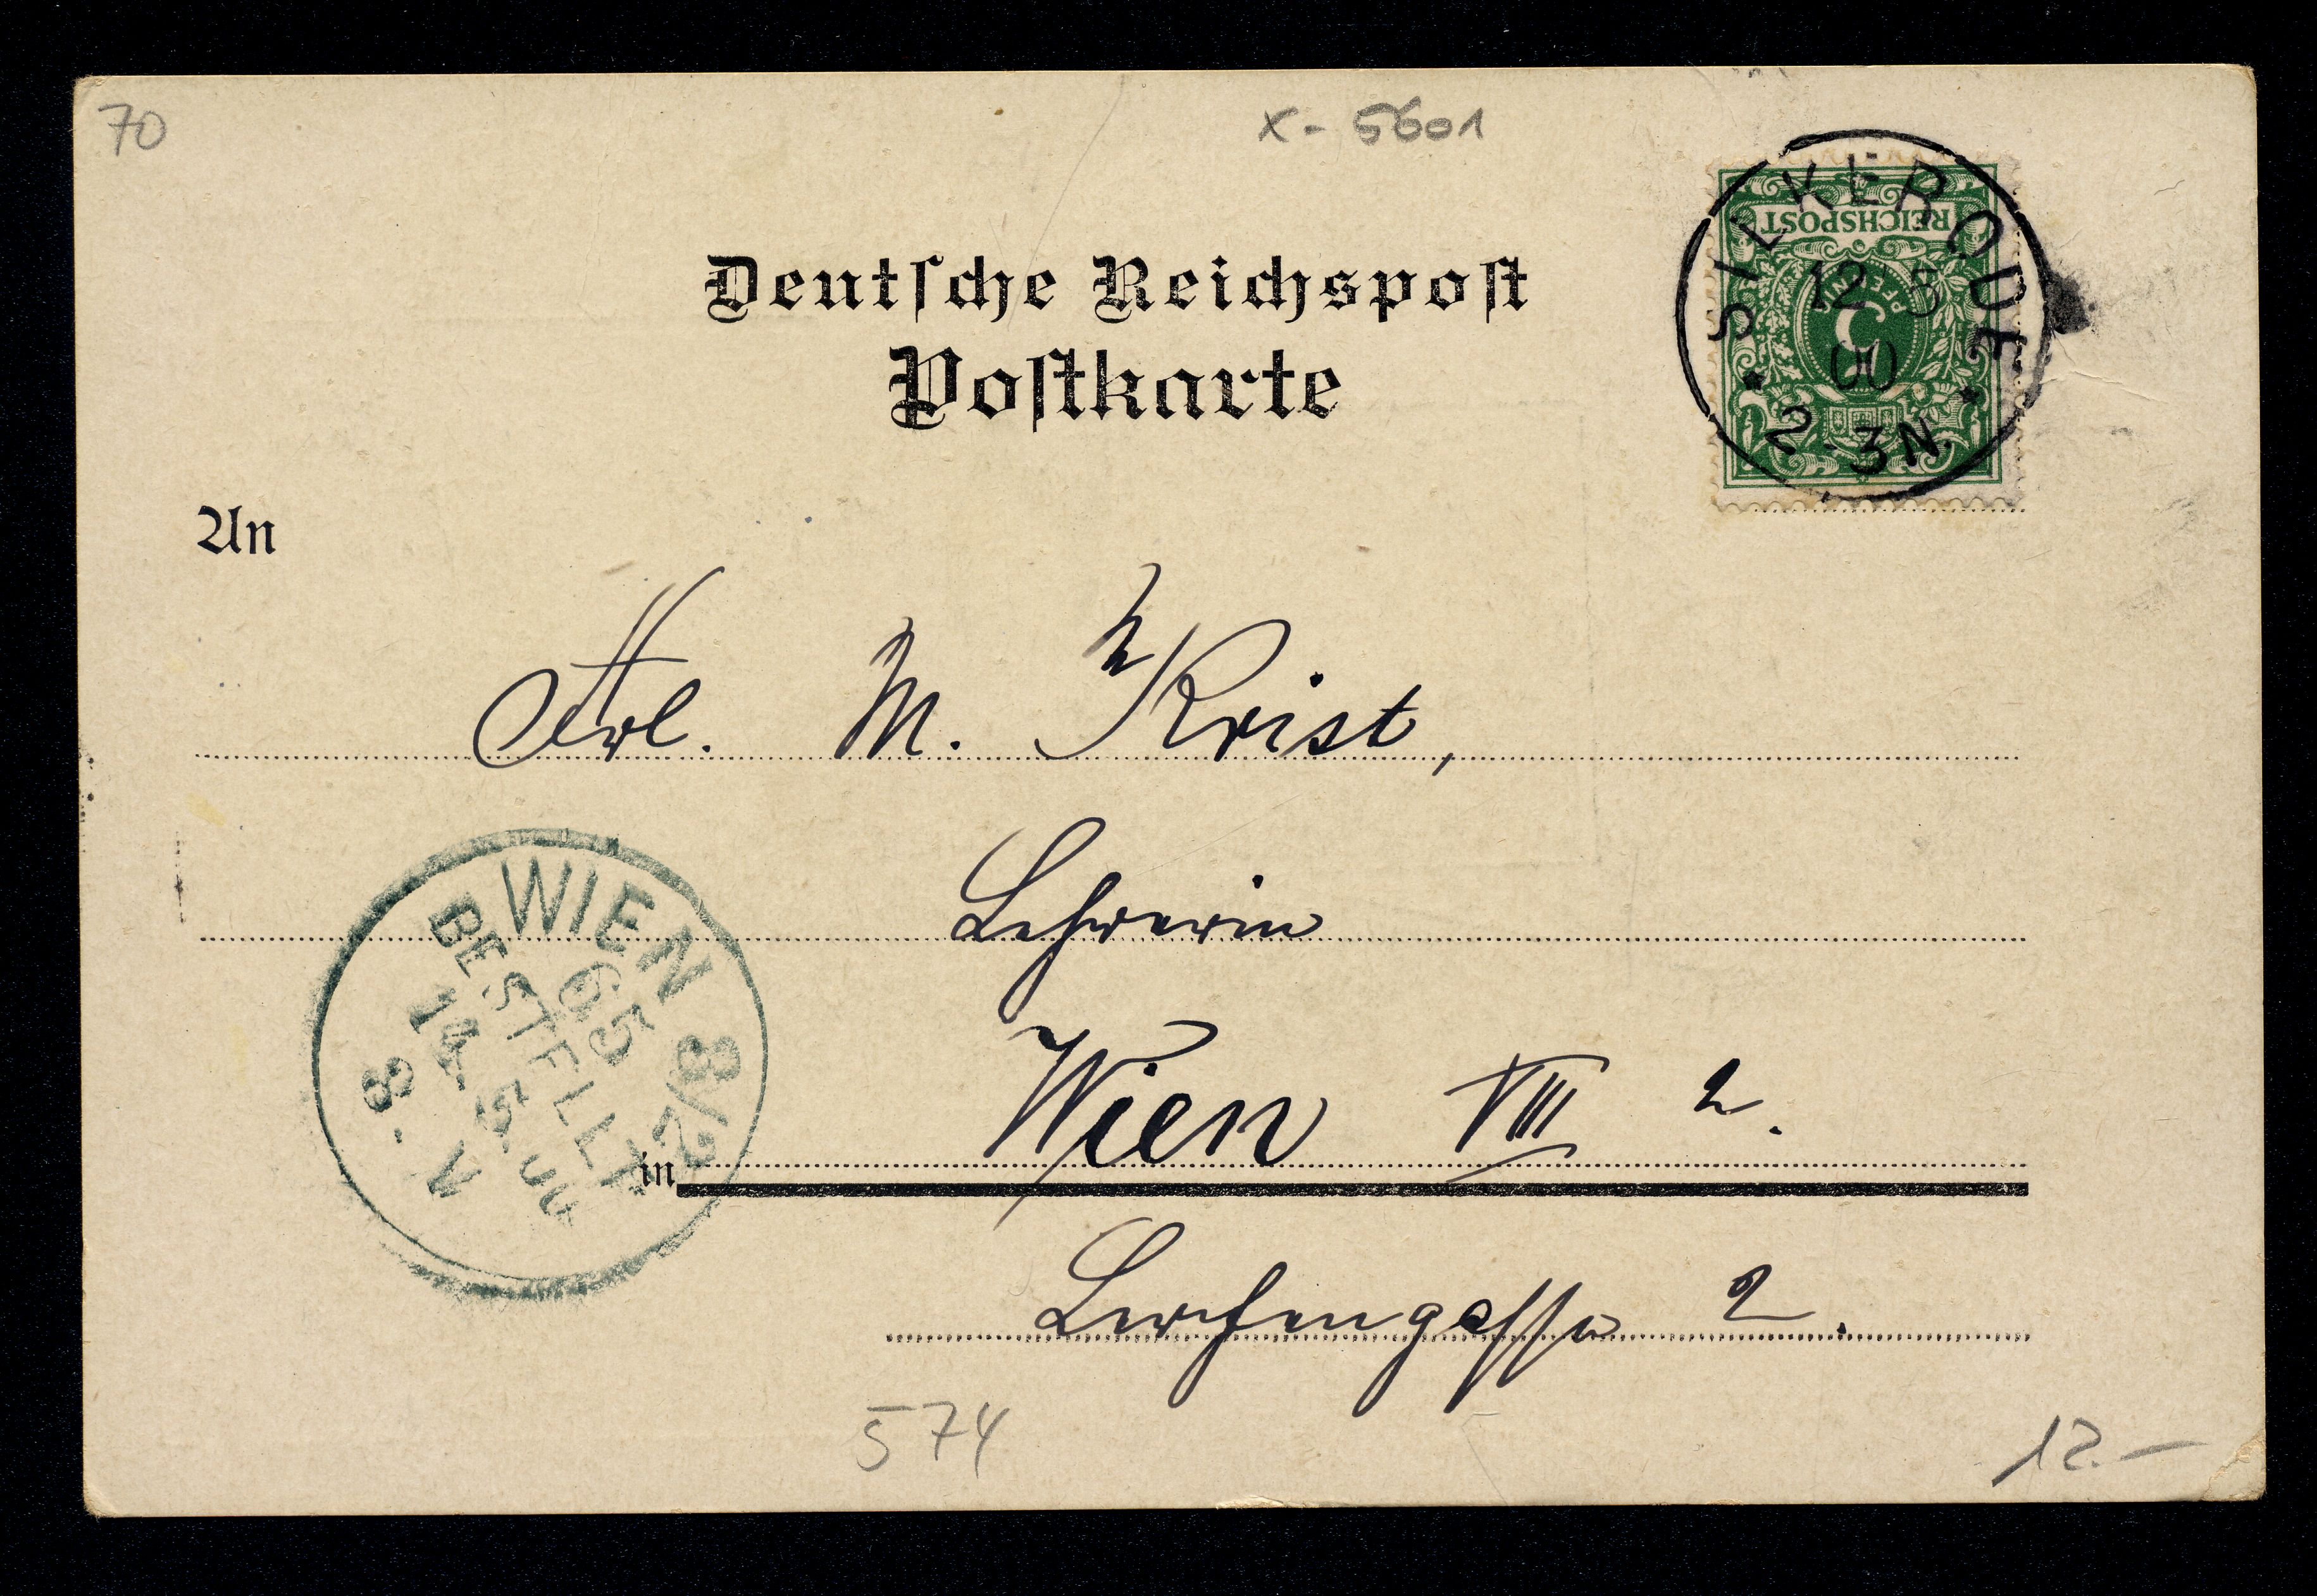 70
x - 5601
Deutſche Reichspoſt
Poſtkarte
SILKERODE
12 5
00
2-3N.
REICHSPOST
5
PFENNIG
An
Frl. M. Krist,
Lehrerin
Wien VIII 2.
in
Lerchengasse 2.
WIEN 8/2
65
BESTELLT
14. 5. 00
8. V
574
12.-